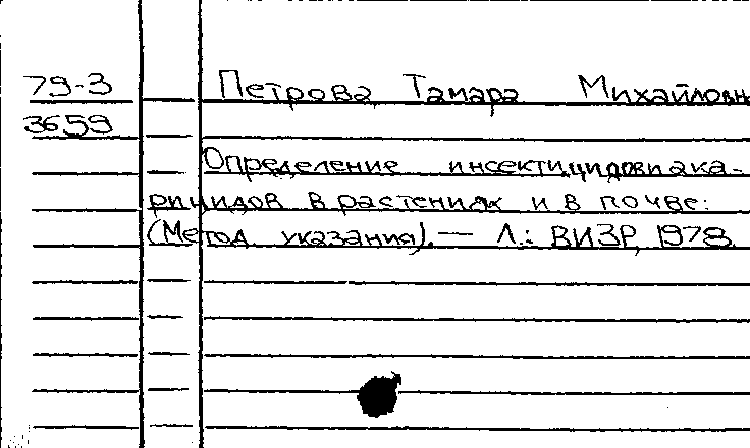 79-3 Петрова Тамара Михайловн
3659
Определение инсектицидов и ака-
рицидов в растениях и в почве:
(Метод. указания). — Л.: ВИЗР, 1978